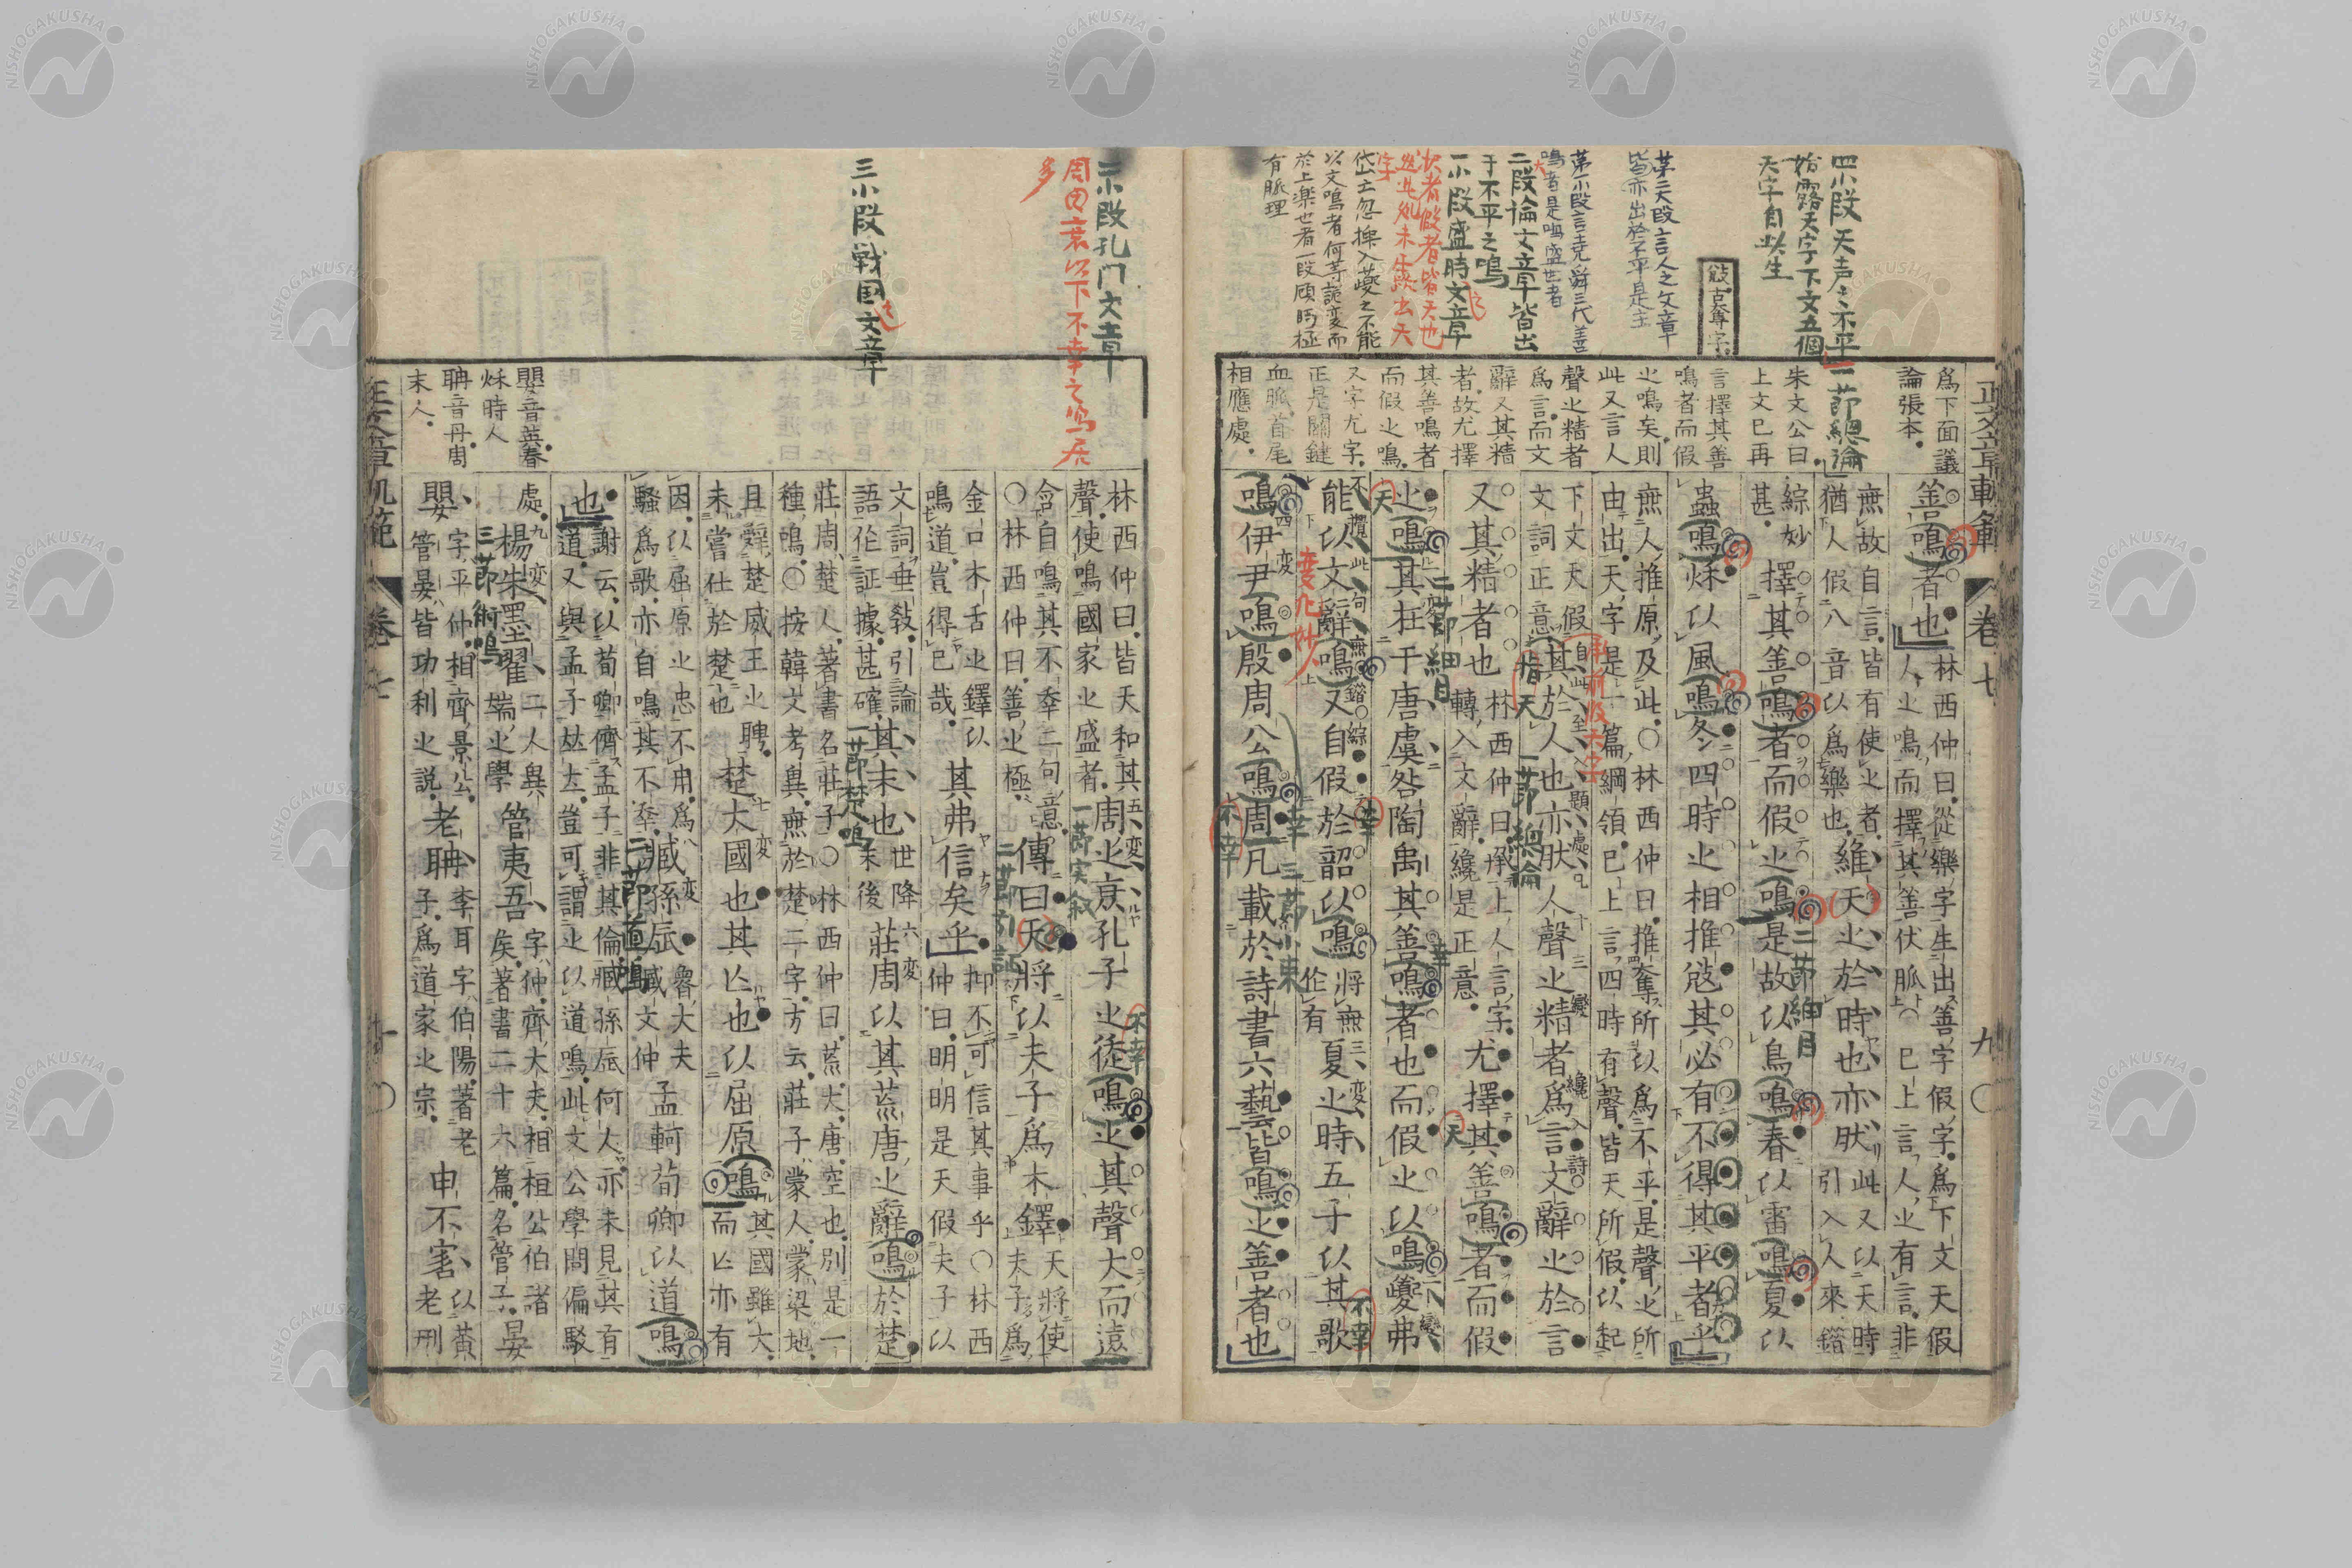 正文章軌範 卷七 九
四小段天声之不平
始露天字下文五個
天字自此生
一節總論
㪅古奪字
第二大段言人之文章
皆亦出於不平是主
第一小段言堯舜三代善
鳴者是鳴盛世者
二段論文章皆出
于不平之鳴
一小段盛時之文章
岱土忽換入夔之不能
以文鳴者何等詭変而
於上楽也者一段顧眄極
有脈理
爲下面議
論張本
朱文公曰
上文已再
言擇其善
鳴者而假
之鳴矣則
此又言人
聲之精者
爲言而文
辭又其精
者故尤擇
其善鳴者
而假之鳴
又字尤字
正是關鍵
血脈首尾
相應處
善鳴者也
林西仲曰從樂字生出善字假字爲下文天假
人之鳴而擇其善伏脈○已上言人之有言非
無故自言皆有使之者
猶人假八音以爲樂也
維天之於時也亦然
此又以天時
引入人來錯
綜妙
甚
擇其善鳴者而假之鳴是故以鳥鳴春以雷鳴夏以
二節細目
蟲鳴秋以風鳴冬四時之相推㪅其必有不得其平者乎
無人推原及此○林西仲曰推奪所以爲不平是聲之所
由出天字是一篇綱領已上言四時有聲皆天所假以起
下文天假
文詞正意
其於人也亦然人聲之精者爲言文辭之於言
一節總論
又其精者也
林西仲曰承上人言字
轉入文辭纔是正意
尤擇其善鳴者而假
指天
天
之鳴其在于唐虞咎陶禹其善鳴者也而假之以鳴夔弗
二節細目
天
幸
能以文辭鳴又自假於韶以鳴
將無
作有
夏之時五子以其歌
変化妙
幸
不幸
三節小束
鳴伊尹鳴殷周公鳴周凡載於詩書六藝皆鳴之善者也
四変
不幸
二小段孔门文章
周由衰以下不幸之鳴居
多
三小段戦国之文章
嬰音英春
秋時人
聃音丹周
末人
林西仲曰皆天和其
聲使鳴國家之盛者
周之衰孔子之徒鳴之其聲大而遠
五変
一節実叙
不幸
含自鳴其不幸二句意
○林西仲曰善之極
傳曰天將以夫子爲木鐸
天將使
夫子爲
二節引証
金口木舌之鐸以
鳴道豈得已哉
其弗信矣乎
抑不可信其事乎○林西
仲曰明明是天假夫子以
文詞垂教引論
語作証據甚確
其末也
世降
末後
莊周以其荒唐之辭鳴於楚
一節楚鳴
六変
莊周楚人著書名莊子○林西仲曰荒大唐空也別是一
種鳴○按韓文考異無於楚二字方云莊子蒙人蒙梁地
且辤楚威王之聘
未嘗仕於楚也
楚大國也其亡也以屈原鳴
其國雖大
而亡亦有
七変
因以屈原之忠不用爲
騷爲歌亦自鳴其不幸
臧孫辰
魯大夫
臧文仲
孟軻荀卿以道鳴
二節道鳴
也
謝云以荀卿儕孟子非其倫臧孫辰何人亦未見其有
道又與孟子㚁左豈可謂之以道鳴此文公學問偏駁
處
楊朱墨翟
二人異
端之學
管夷吾
字仲齊大夫相桓公伯諸
侯著書二十六篇名管子
晏
三節術鳴
九変
嬰
字平仲相齊景公
管晏皆功利之説
老聃
李耳字伯陽著老
子爲道家之宗
申不害
以黃
老刑
正文章軌範 卷七 十
NISHOGAKUSHA